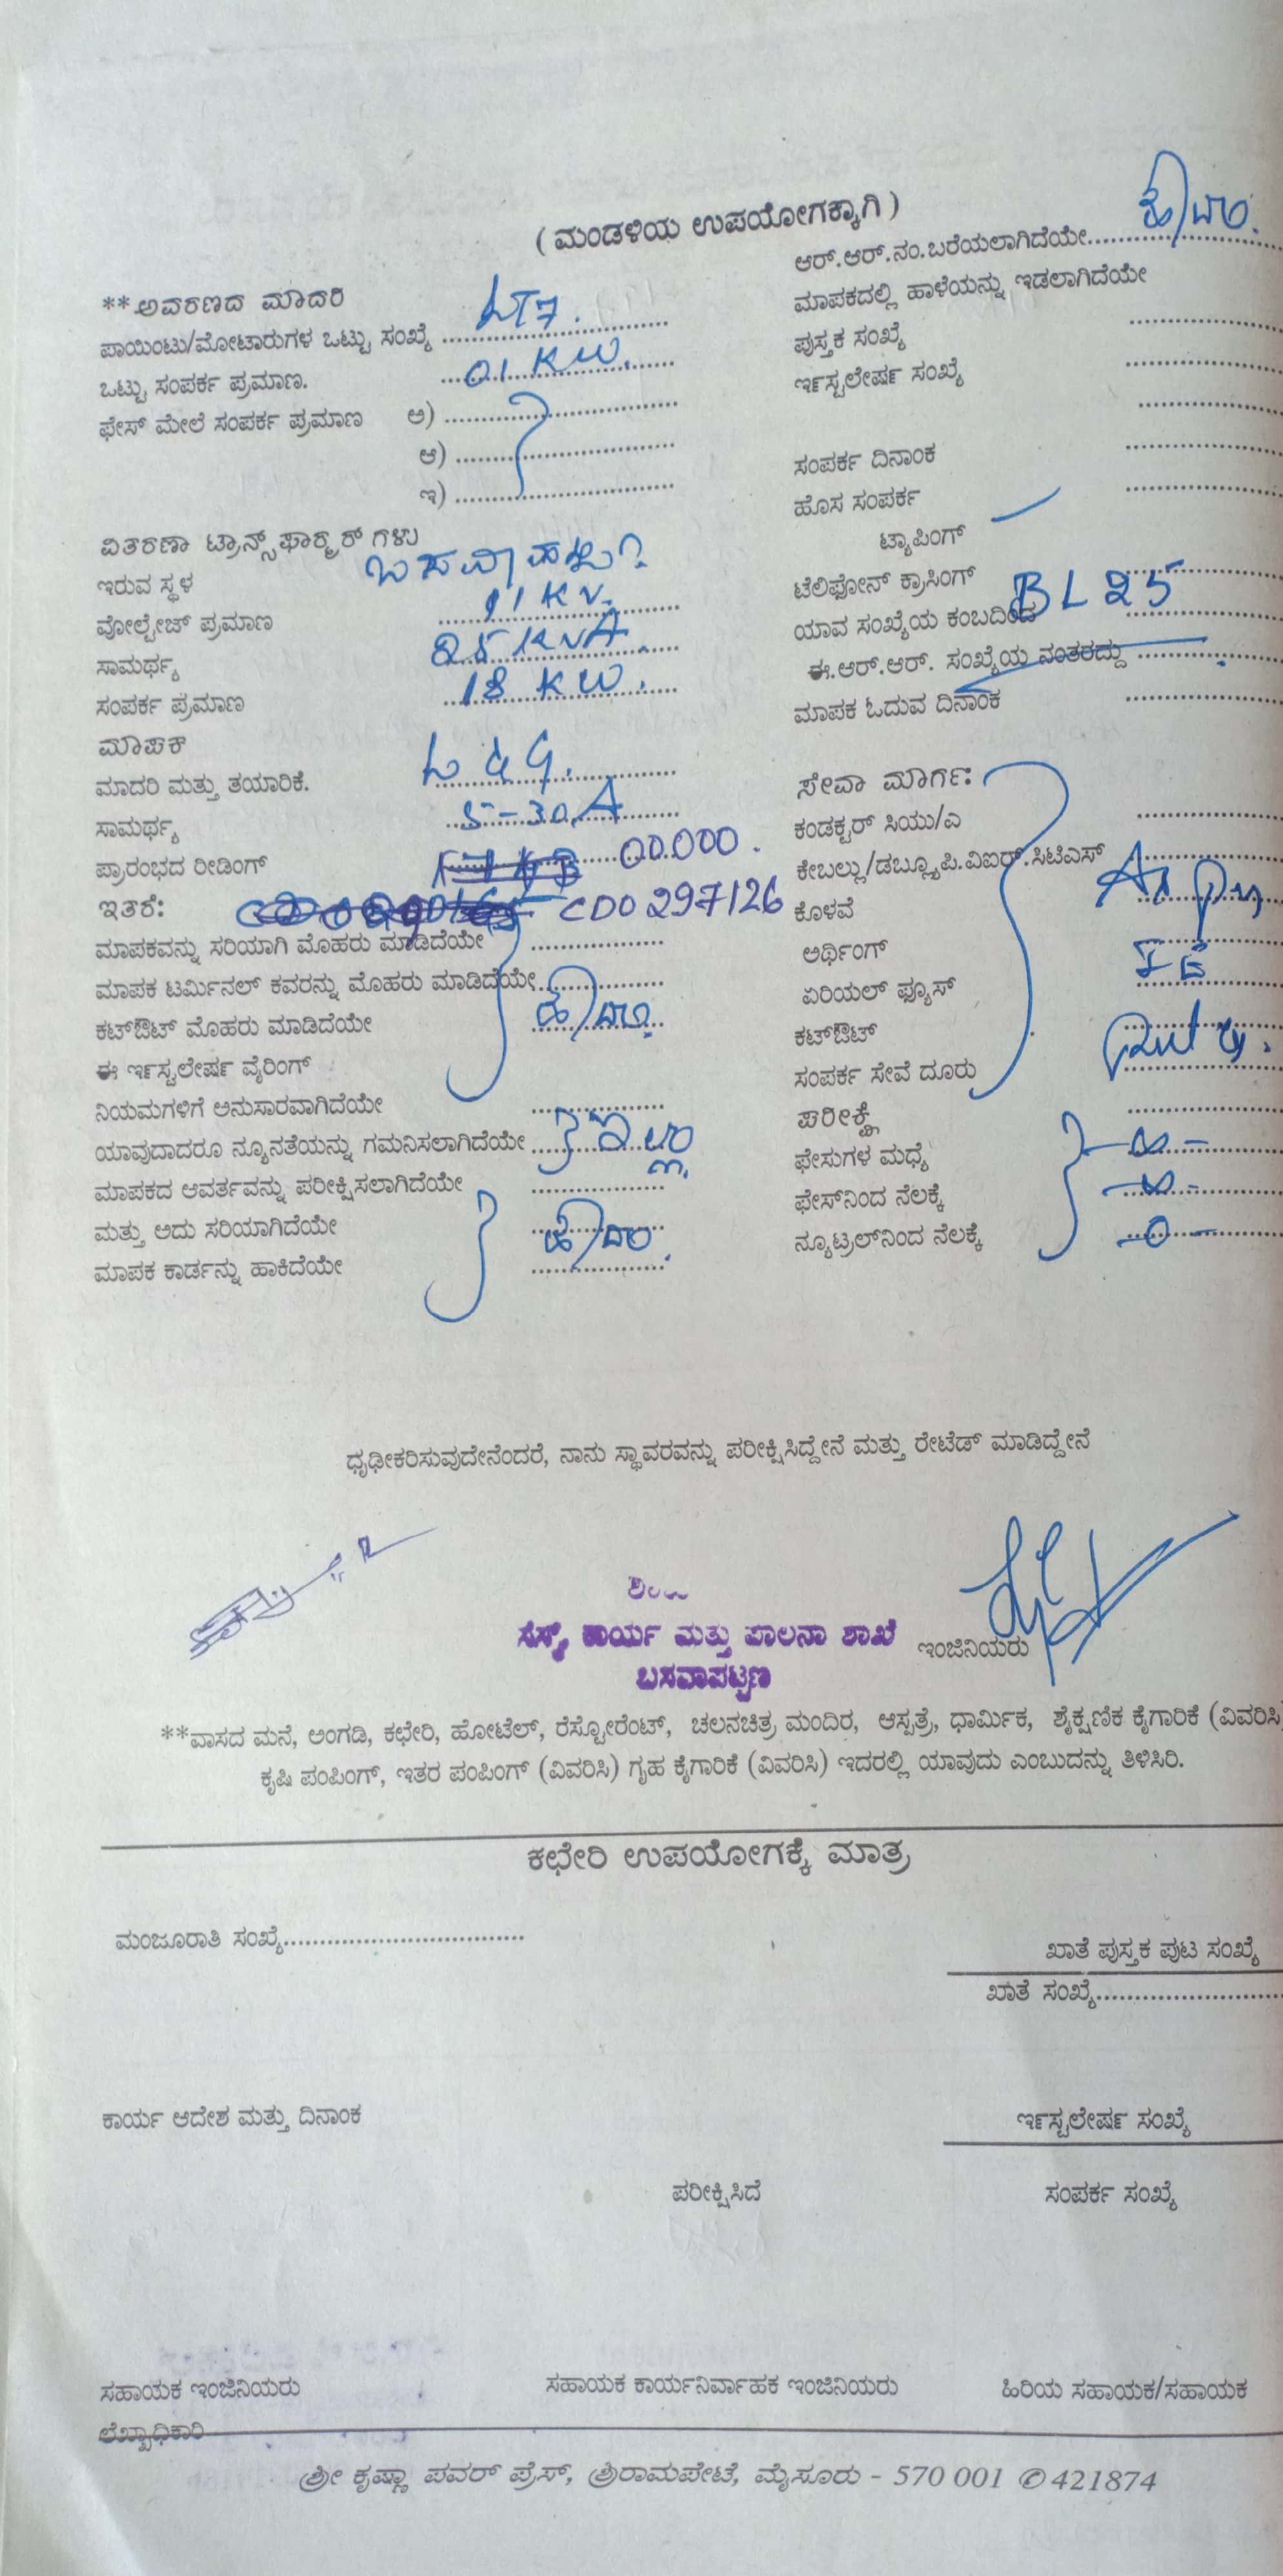 ( ಮಂಡಳಿಯ ಉಪಯೋಗಕ್ಕಾಗಿ )
**ಅವರಣದ ಮಾದರಿ
ಪಾಯಿಂಟು/ಮೋಟಾರುಗಳ ಒಟ್ಟು ಸಂಖ್ಯೆ LT7.
ಒಟ್ಟು ಸಂಪರ್ಕ ಪ್ರಮಾಣ. 01 KW.
ಫೇಸ್ ಮೇಲೆ ಸಂಪರ್ಕ ಪ್ರಮಾಣ ಅ)
ಆ)
ಇ)
ವಿತರಣಾ ಟ್ರಾನ್ಸ್‌ಫಾರ್‍ಮರ್ ಗಳು
ಇರುವ ಸ್ಥಳ
ವೋಲ್ಟೇಜ್ ಪ್ರಮಾಣ 11 KV.
ಸಾಮರ್ಥ್ಯ 25 KVA.
ಸಂಪರ್ಕ ಪ್ರಮಾಣ 18 KW.
ಮಾಪಕ
ಮಾದರಿ ಮತ್ತು ತಯಾರಿಕೆ. L & G.
ಸಾಮರ್ಥ್ಯ 5-30A
ಪ್ರಾರಂಭದ ರೀಡಿಂಗ್ 00.000.
ಇತರೆ: CD0297126
ಮಾಪಕವನ್ನು ಸರಿಯಾಗಿ ಮೊಹರು ಮಾಡಿದೆಯೇ
ಮಾಪಕ ಟರ್ಮಿನಲ್ ಕವರನ್ನು ಮೊಹರು ಮಾಡಿದೆಯೇ
ಕಟ್‌ಔಟ್ ಮೊಹರು ಮಾಡಿದೆಯೇ ಹೌದು.
ಈ ಇನ್‌ಸ್ಟಲೇಷನ್ ವೈರಿಂಗ್
ನಿಯಮಗಳಿಗೆ ಅನುಸಾರವಾಗಿದೆಯೇ
ಯಾವುದಾದರೂ ನ್ಯೂನತೆಯನ್ನು ಗಮನಿಸಲಾಗಿದೆಯೇ ಇಲ್ಲ
ಮಾಪಕದ ಆವರ್ತವನ್ನು ಪರೀಕ್ಷಿಸಲಾಗಿದೆಯೇ
ಮತ್ತು ಅದು ಸರಿಯಾಗಿದೆಯೇ ಹೌದು.
ಮಾಪಕ ಕಾರ್ಡನ್ನು ಹಾಕಿದೆಯೇ
ಆರ್.ಆರ್.ನಂ.ಬರೆಯಲಾಗಿದೆಯೇ ಹೌದು.
ಮಾಪಕದಲ್ಲಿ ಹಾಳೆಯನ್ನು ಇಡಲಾಗಿದೆಯೇ
ಪುಸ್ತಕ ಸಂಖ್ಯೆ
ಇನ್‌ಸ್ಟಲೇಷನ್ ಸಂಖ್ಯೆ
ಸಂಪರ್ಕ ದಿನಾಂಕ
ಹೊಸ ಸಂಪರ್ಕ
ಟ್ಯಾಪಿಂಗ್
ಟೆಲಿಫೋನ್ ಕ್ರಾಸಿಂಗ್
ಯಾವ ಸಂಖ್ಯೆಯ ಕಂಬದಿಂದ BL 25
ಈ.ಆರ್.ಆರ್. ಸಂಖ್ಯೆಯ ನಂತರದ್ದು
ಮಾಪಕ ಓದುವ ದಿನಾಂಕ
ಸೇವಾ ಮಾರ್ಗ:
ಕಂಡಕ್ಟರ್ ಸಿಯು/ಎ
ಕೇಬಲ್ಲು/ಡಬ್ಲ್ಯೂಪಿ.ವಿಐರ್.ಸಿಟಿಎಸ್
ಕೊಳವೆ
ಅರ್ಥಿಂಗ್
ಏರಿಯಲ್ ಫ್ಯೂಸ್
ಕಟ್‌ಔಟ್
ಸಂಪರ್ಕ ಸೇವೆ ದೂರು
ಪರೀಕ್ಷೆ
ಫೇಸುಗಳ ಮಧ್ಯೆ –∞–
ಫೇಸ್‌ನಿಂದ ನೆಲಕ್ಕೆ –∞–
ನ್ಯೂಟ್ರಲ್‌ನಿಂದ ನೆಲಕ್ಕೆ –0–
ಧೃಢೀಕರಿಸುವುದೇನೆಂದರೆ, ನಾನು ಸ್ಥಾವರವನ್ನು ಪರೀಕ್ಷಿಸಿದ್ದೇನೆ ಮತ್ತು ರೇಟೆಡ್ ಮಾಡಿದ್ದೇನೆ
ಸೆಸ್ಕ್, ಕಾರ್ಯ ಮತ್ತು ಪಾಲನಾ ಶಾಖೆ
ಬಸವಾಪಟ್ಟಣ
ಇಂಜಿನಿಯರು
**ವಾಸದ ಮನೆ, ಅಂಗಡಿ, ಕಛೇರಿ, ಹೋಟೆಲ್, ರೆಸ್ಟೋರೆಂಟ್, ಚಲನಚಿತ್ರ ಮಂದಿರ, ಆಸ್ಪತ್ರೆ, ಧಾರ್ಮಿಕ, ಶೈಕ್ಷಣಿಕ ಕೈಗಾರಿಕೆ (ವಿವರಿಸಿ
ಕೃಷಿ ಪಂಪಿಂಗ್, ಇತರ ಪಂಪಿಂಗ್ (ವಿವರಿಸಿ) ಗೃಹ ಕೈಗಾರಿಕೆ (ವಿವರಿಸಿ) ಇದರಲ್ಲಿ ಯಾವುದು ಎಂಬುದನ್ನು ತಿಳಿಸಿರಿ.
ಕಛೇರಿ ಉಪಯೋಗಕ್ಕೆ ಮಾತ್ರ
ಮಂಜೂರಾತಿ ಸಂಖ್ಯೆ
ಖಾತೆ ಪುಸ್ತಕ ಪುಟ ಸಂಖ್ಯೆ
ಖಾತೆ ಸಂಖ್ಯೆ
ಕಾರ್ಯ ಆದೇಶ ಮತ್ತು ದಿನಾಂಕ
ಇನ್‌ಸ್ಟಲೇಷನ್ ಸಂಖ್ಯೆ
ಪರೀಕ್ಷಿಸಿದೆ ಸಂಪರ್ಕ ಸಂಖ್ಯೆ
ಸಹಾಯಕ ಇಂಜಿನಿಯರು ಸಹಾಯಕ ಕಾರ್ಯನಿರ್ವಾಹಕ ಇಂಜಿನಿಯರು ಹಿರಿಯ ಸಹಾಯಕ/ಸಹಾಯಕ
ಲೆಖ್ಖಾಧಿಕಾರಿ
ಶ್ರೀ ಕೃಷ್ಣಾ ಪವರ್ ಪ್ರೆಸ್, ಶ್ರೀರಾಮಪೇಟೆ, ಮೈಸೂರು - 570 001 ✆ 421874